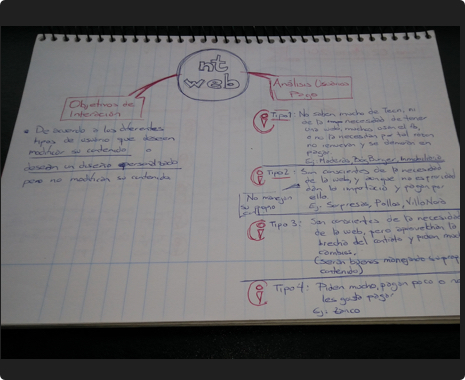 nt
web
Objetivos de
Interacción
Análisis Usuario
Pago
De acuerdo a los diferentes
tipos de usuario que desean
modificar su contenido o
desean un diseño personalizado
pero no modificar su contenido
Tipo 1: No saben mucho de Tecn, ni
de la necesidad de tener
una web, muchos usan
o no la necesitan
no renuevan y se demoran en
pagar
Ej:
Tipo 2: Son conscientes de la necesidad
de la web y aunque no
dan la importancia y pagan por
ella
Ej: Sorpresas, Pallas, Villa
No manejan
su propio
Tipo 3: Son conscientes de la necesidad
de la web, pero aprovechan la
brecha del contrato y piden
cambios,
(serían buenos manejando su propio
contenido)
Tipo 4: Piden mucho, pagan poco o no
les gusta pagar
Ej: